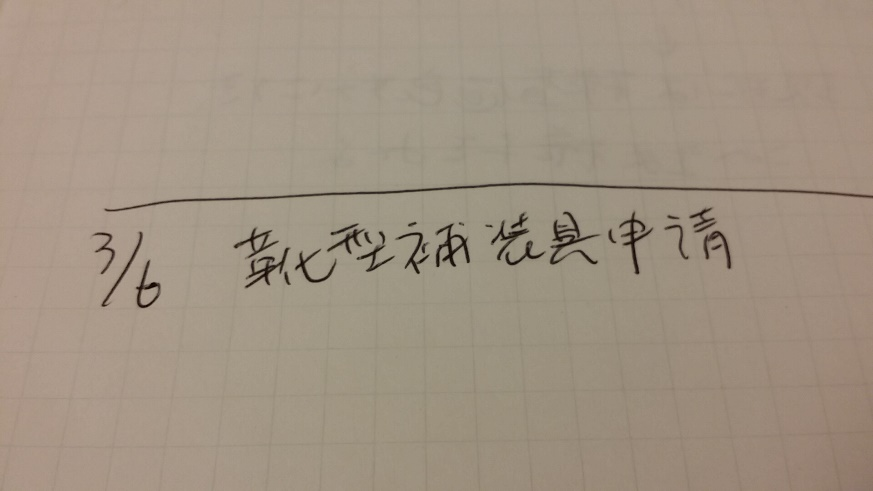 3/6 靴型補装具申請